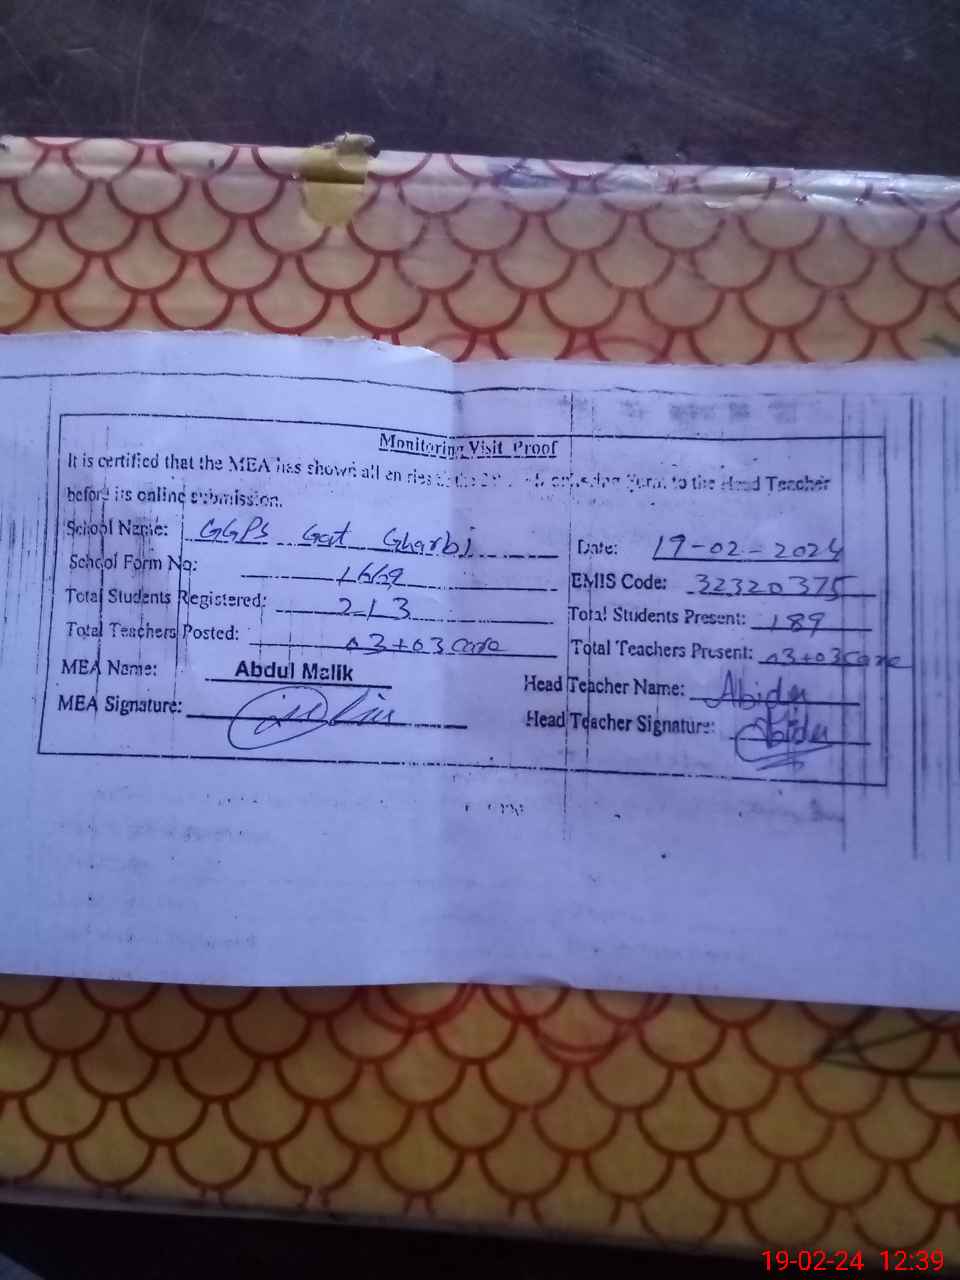 Monitoring Visit Proof
It is certified that the MEA has shown all entries to the Head Teacher
before its online submission.
School Name: GGPS Gat Gharbi
Date: 19-02-2024
School Form No: 1669
EMIS Code: 32320375
Total Students Registered: 213
Total Students Present: 189
Total Teachers Posted: 03+03 care
Total Teachers Present: 03+03 care
MEA Name: Abdul Malik
Head Teacher Name: Abida
MEA Signature:
Head Teacher Signature: Abida
19-02-24 12:39